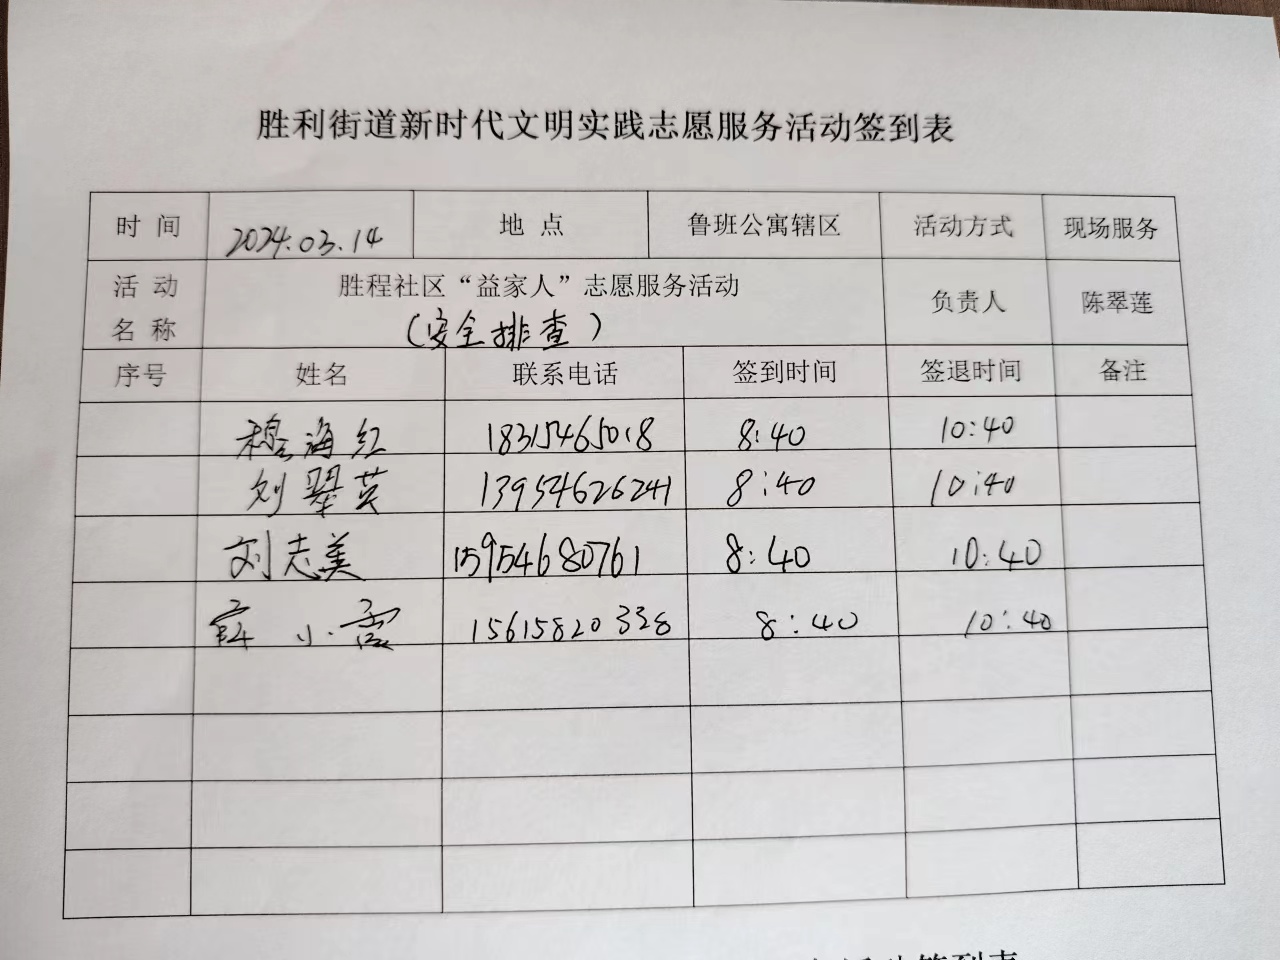 胜利街道新时代文明实践志愿服务活动签到表
时间 2024.03.14 地点 鲁班公寓辖区 活动方式 现场服务
活动名称 胜程社区“益家人”志愿服务活动 负责人 陈翠莲
(安全排查)
序号 姓名 联系电话 签到时间 签退时间 备注
穆海红 18315465018 8:40 10:40
刘翠英 13954626241 8:40 10:40
刘志美 15954680761 8:40 10:40
薛小 15615820338 8:40 10:40
签到表